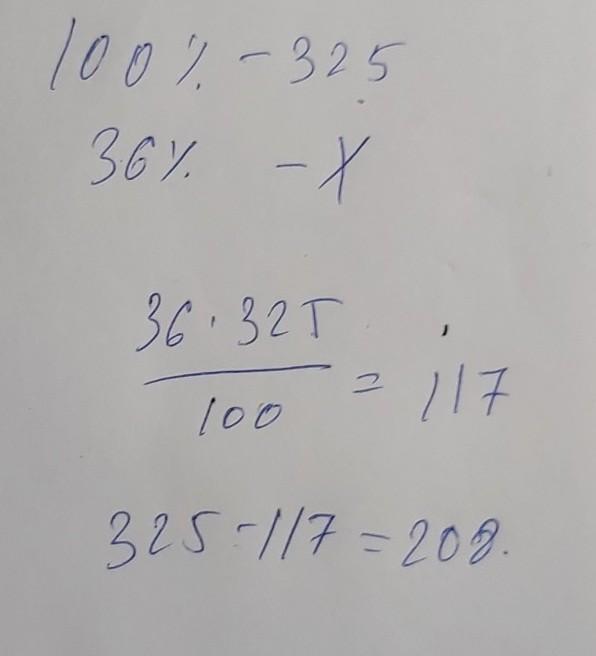 100% - 325
36% - X
36 · 325
100
= 117
325 - 117 = 208.